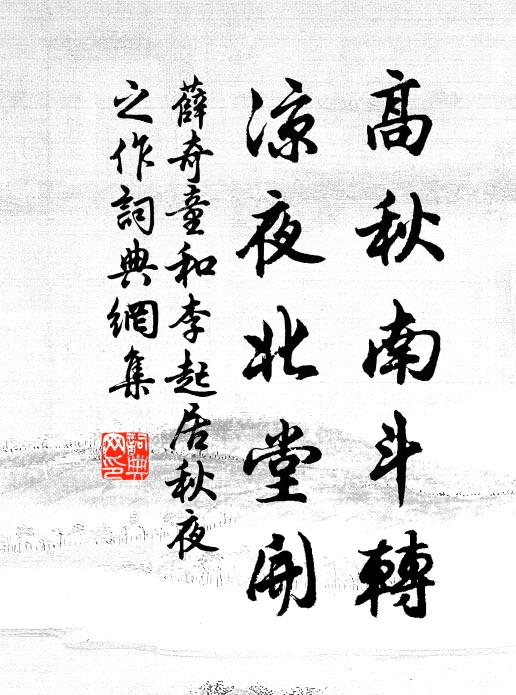 高秋南斗轉
涼夜北堂開
薛奇童和李起居秋夜
之作詞典網集
詞典
网印